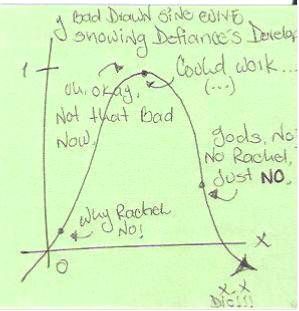 y Bad Drawn sine curve
showing Defiance's Develop
1
uh, okay,
Not that Bad
Now.
Could work...
(...)
gods, No.
No Rachel,
Just NO.
Why Rachel
NO!
X
0
x_x
Die!!!